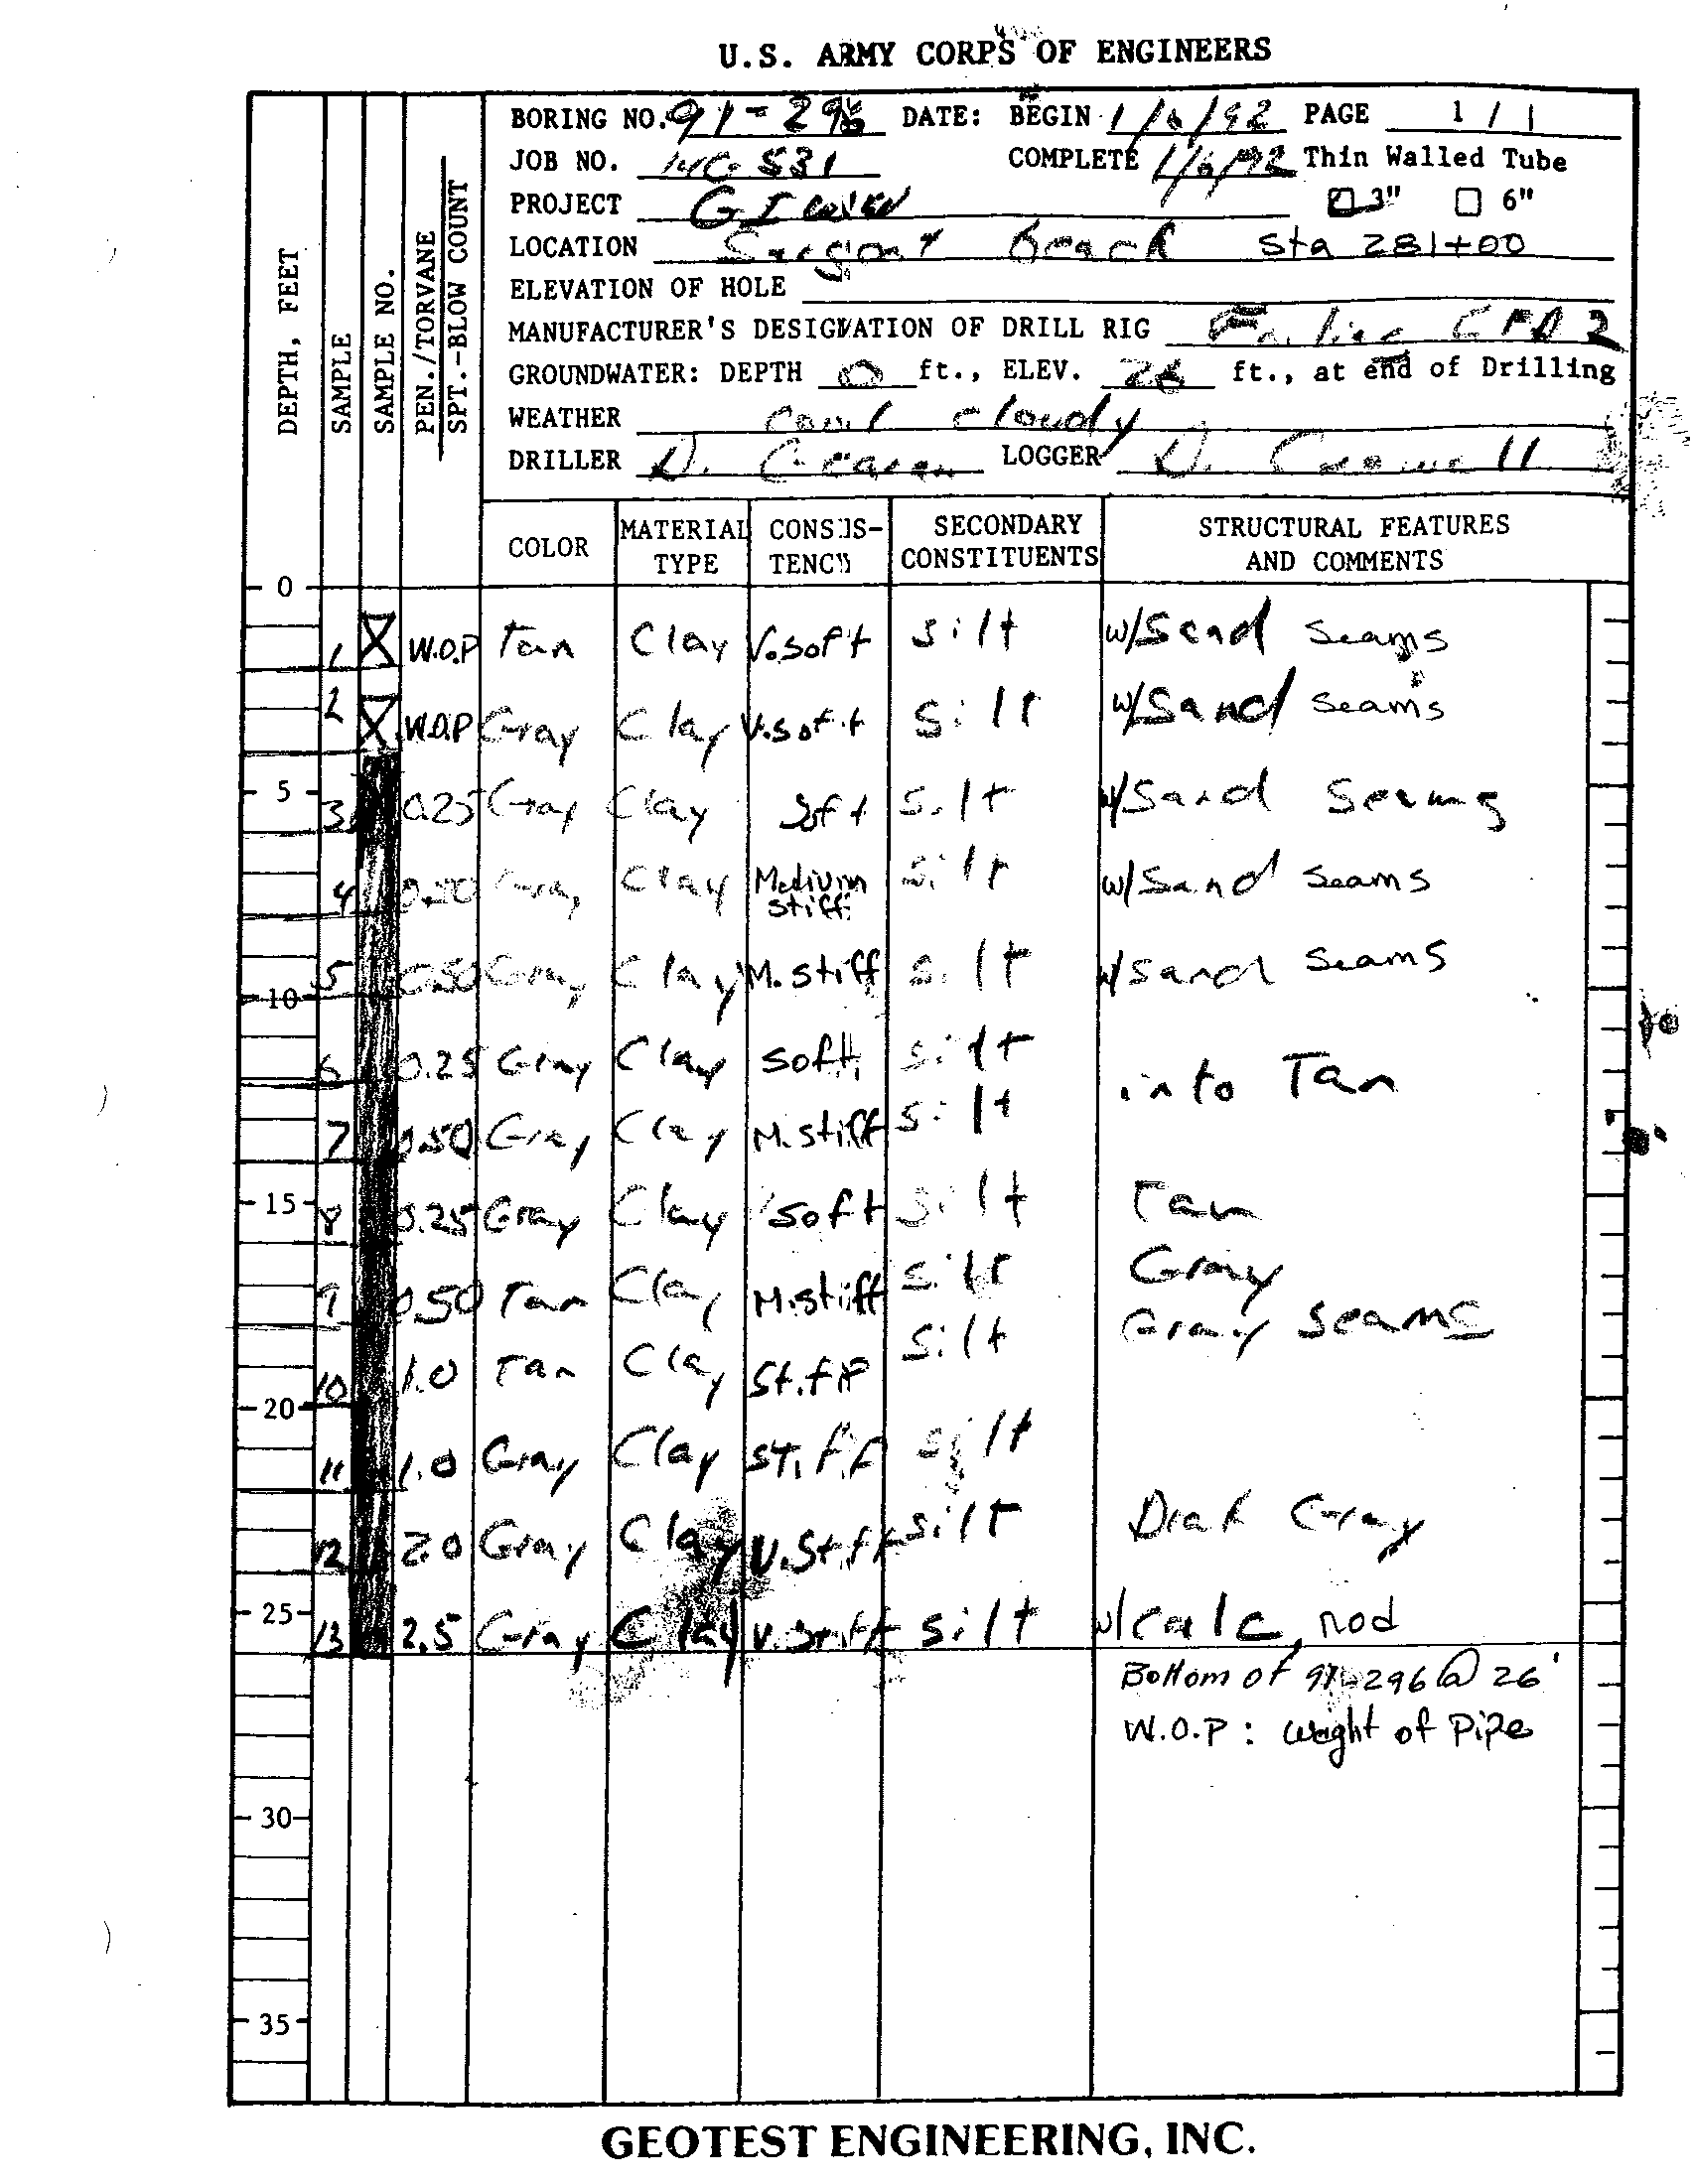 U.S. ARMY CORPS OF ENGINEERS
BORING NO. 91-296 DATE: BEGIN 1/6/92 PAGE 1/1
JOB NO. 531 COMPLETE 1/6/92 Thin Walled Tube
PROJECT GIWW 3" 6"
LOCATION Sargent Beach Sta 281+00
ELEVATION OF HOLE
MANUFACTURER'S DESIGNATION OF DRILL RIG
GROUNDWATER: DEPTH 0 ft., ELEV. 26 ft., at end of Drilling
WEATHER cool cloudy
DRILLER D. LOGGER D.
DEPTH, FEET
SAMPLE
SAMPLE NO.
PEN./TORVANE
SPT.-BLOW COUNT
COLOR MATERIAL TYPE CONSISTENCY SECONDARY CONSTITUENTS STRUCTURAL FEATURES AND COMMENTS
0
1 W.O.P Tan Clay V.soft silt w/Sand Seams
2 W.O.P Gray Clay V.soft silt w/Sand seams
5
3 0.25 Gray Clay soft silt w/Sand Seams
4 0.50 Gray Clay Medium stiff silt w/Sand seams
5 0.50 Gray Clay M.stiff silt w/Sand seams
10
6 0.25 Gray Clay soft silt into Tan
7 0.50 Gray Clay M.stiff silt
15
8 0.25 Gray Clay soft silt Tan
9 0.50 Tan Clay M.stiff silt Gray
10 1.0 Tan Clay Stiff silt Gray seams
20
11 1.0 Gray Clay Stiff silt
12 2.0 Gray Clay V.Stiff silt Drak Gray
25
13 2.5 Gray Clay V.Stiff silt w/calc, nod
Bottom of 91-296 @ 26'
W.O.P : Weight of Pipe
30
35
GEOTEST ENGINEERING, INC.